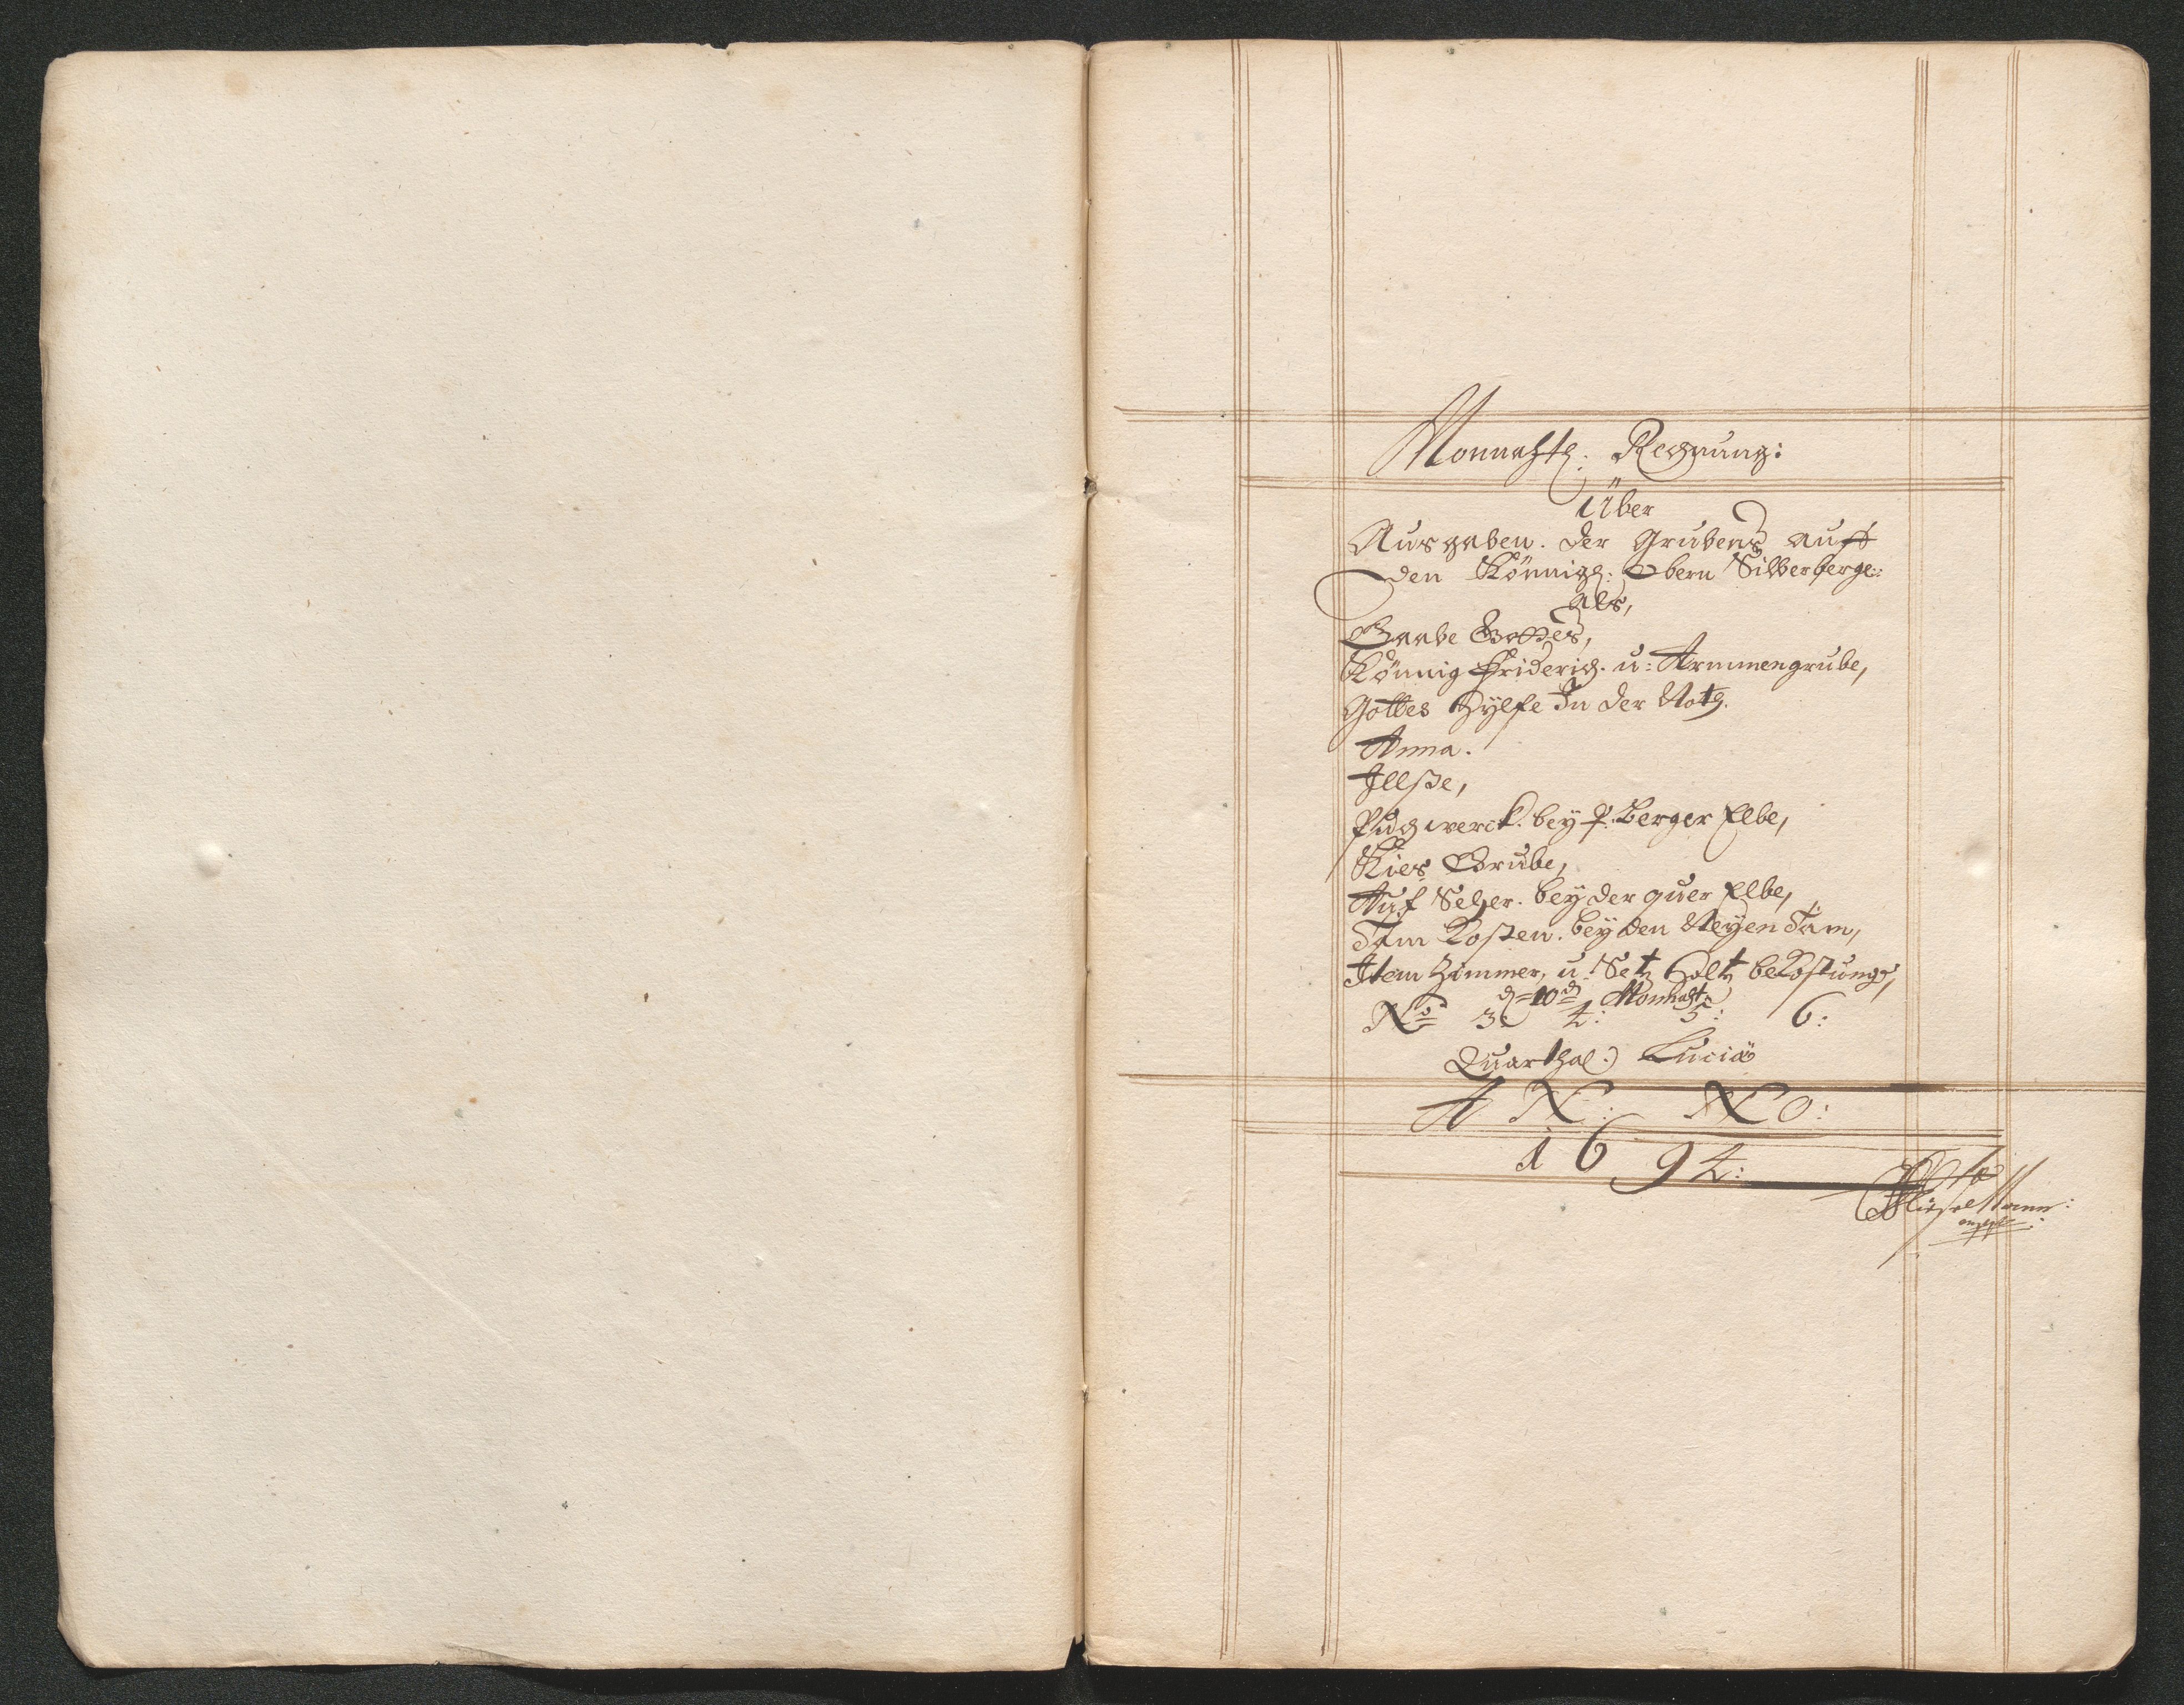 Monnahtl: Rechnung:
Über
Ausgaben. der Grubens auff
den Könnigl: Obern Silberberge:
Als,
Gaabe Gottes,
Könnig Friderich. u: Armmengrube,
Gottes Hylfe In der Noth.
Anna.
Illsse,
Puchwerck. bey q: berger Elbe,
Kies Grube,
Auf Seher. bey der quer Elbe,
Tam Kosten. bey den Neyen Tam,
Item Zimmer, u: Setz Holtz bekostung,
d = 10 d Monnaht
No 3: 4: 5: 6:
Quarthal:) Luciä
AN: NO:
1694: